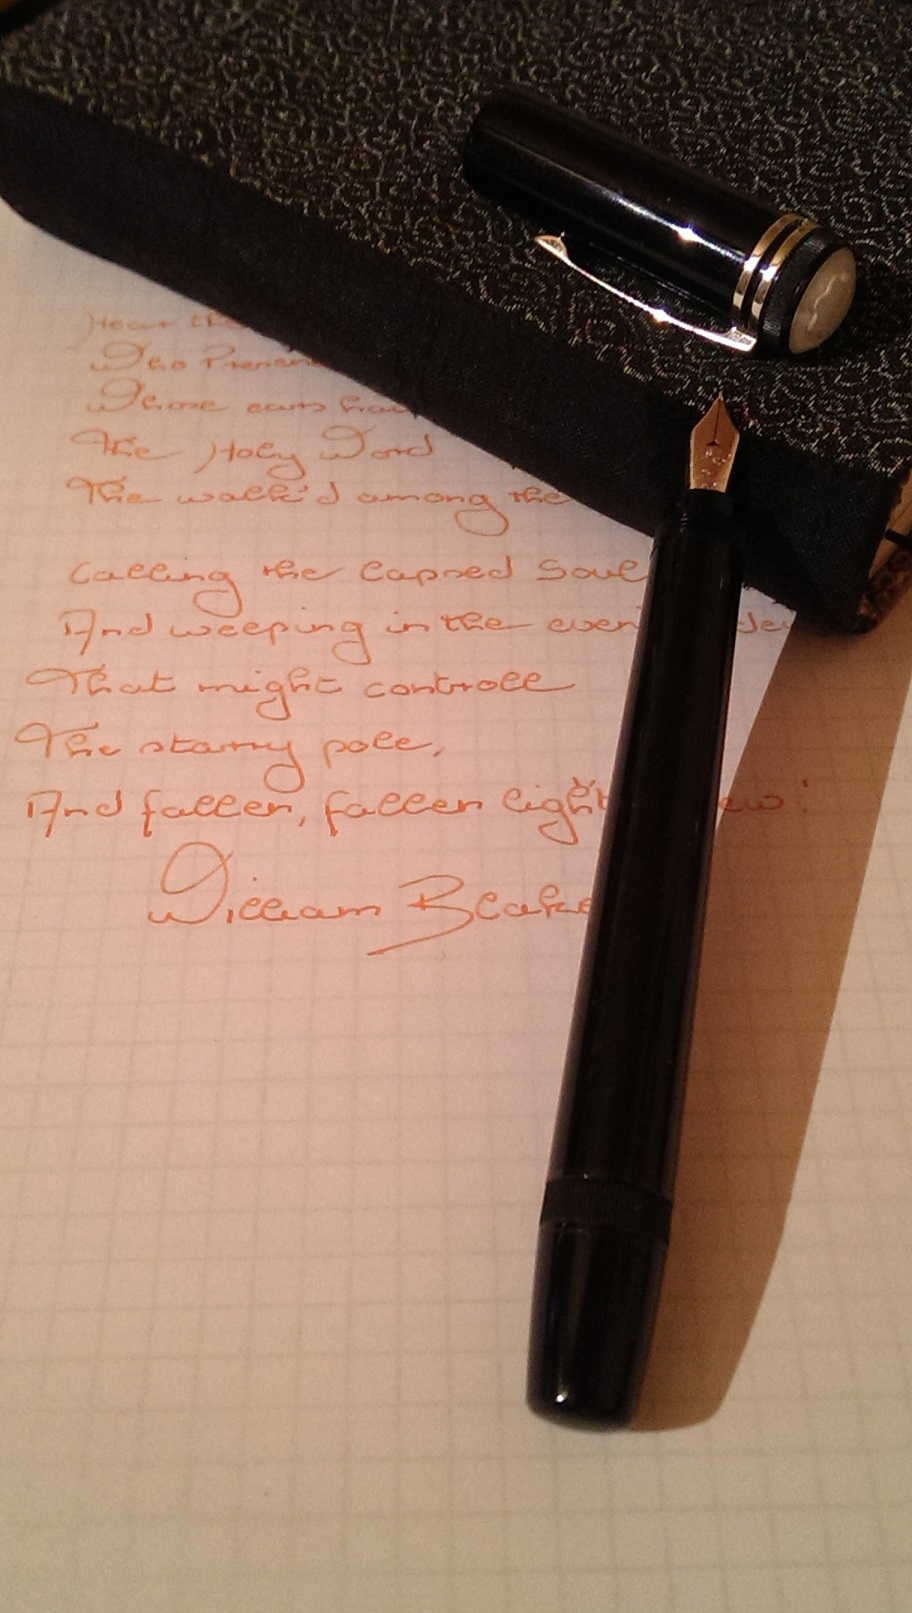 Hear the
Who Presen
Whose ears hav
The Holy Word
The walk'd among the
Calling the lapsed Soul
And weeping in the even dew
That might controll
The starry pole,
And fallen, fallen light ew!
William Blake